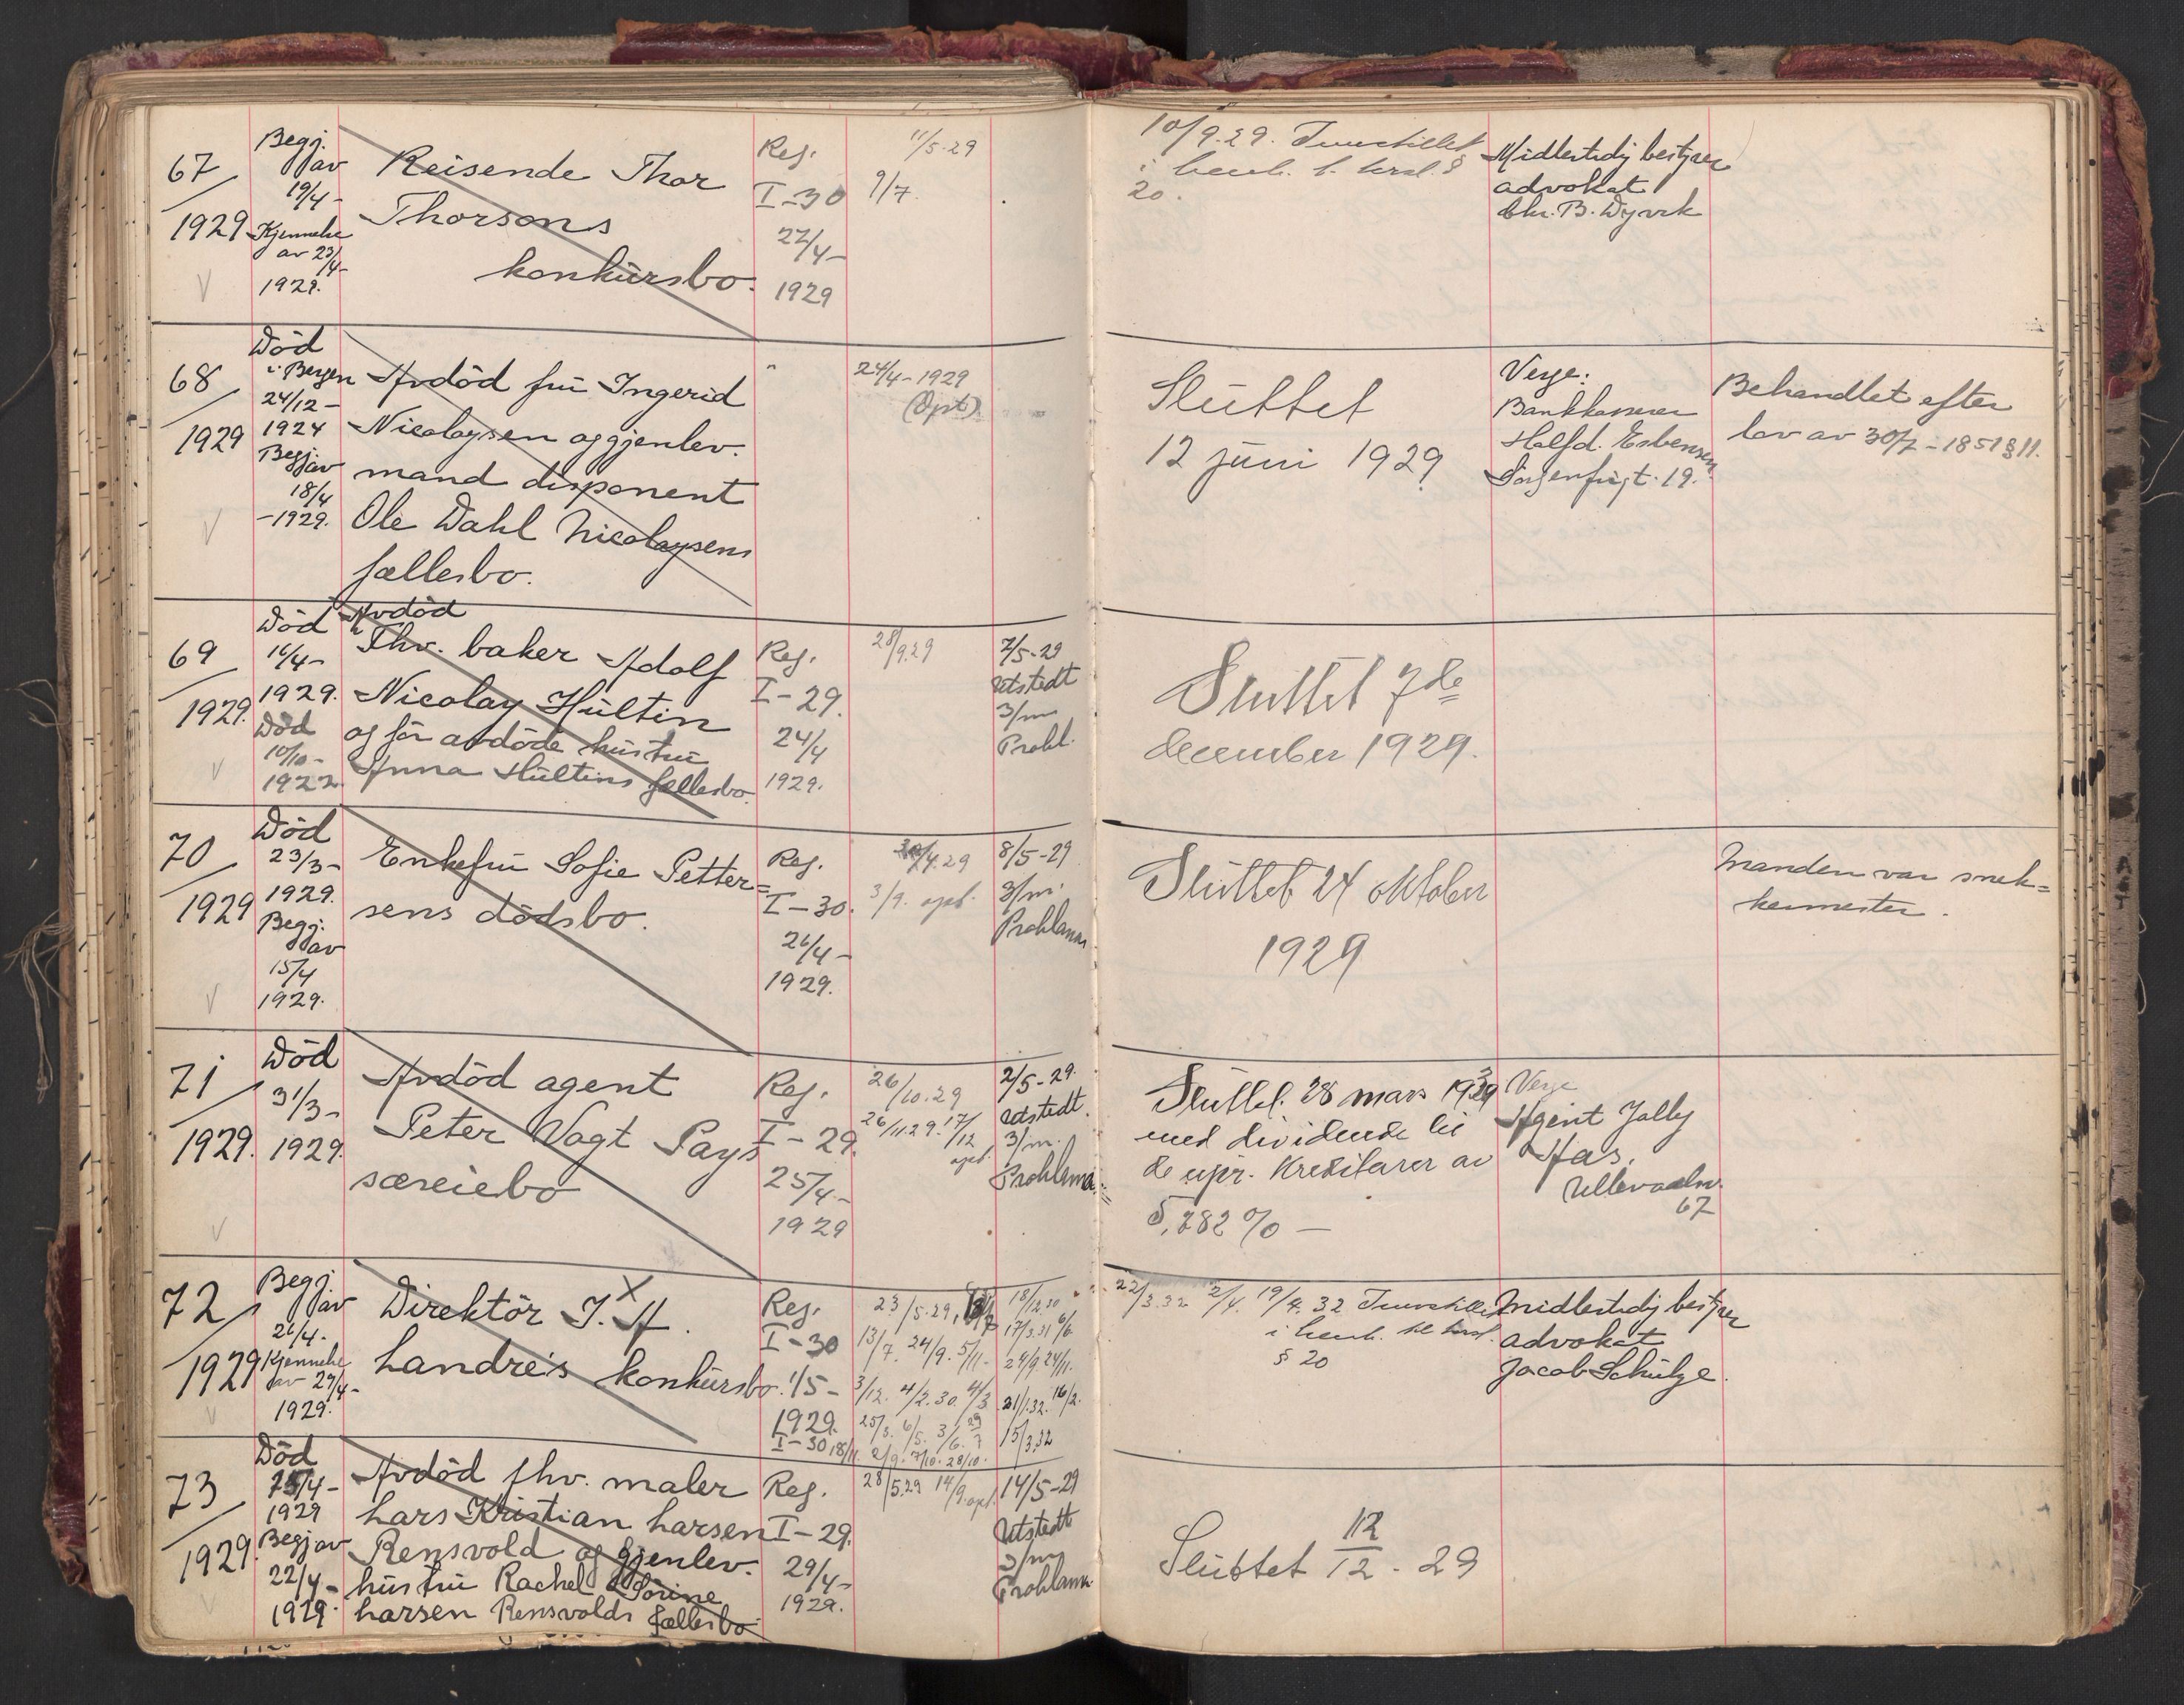 67
1929
Begj.
av
19/4 -
Kjennelse
av 23/4 -
1929.
Reisende Thor
Thorsons
konkursbo.
Reg.
I-30
27/4 -
1929
11/5-29
9/7.
10/9.29. Innstillet
i henh. t. kresl. §
20.
Midlertidig bestyrer
advokat
Chr. B. Dyvik
68
1929
Død
i Bergen
24/12 -
1924
Begj av
18/4
- 1929.
Avdød fru Ingerid
Nicolaysen og gjenlev.
mand disponent
Ole Dahl Nicolaysens
fællesbo.
"
24/4 - 1929
(Opt)
Sluttet
12 juni 1929
Verge:
Bankkasserer
Halfd. Esbensen
Sorgenfrigt. 19.
Behandlet efter
lov av 30/7 - 1851 § 11.
69
1929.
Død
16/4 -
1929.
Død
10/10 -
1922
Avdød
Fhv. baker Adolf
Nicolay Hultin
og før avdøde hustru
Anna Hultins fællesbo.
Reg.
I-29.
24/4
1929.
28/9.29
7/5-29
Utstedt
3/m
Prokl.
Sluttet 7de
december 1929.
70
1929
Død
23/3 -
1929.
Begj.
av
15/4
1929.
Enkefru Sofie Petter=
sens dødsbo.
Reg.
I-30.
26/4 -
1929.
/4.29
3/9. opt.
8/5-29
3/m.
Proklama
Sluttet 24 oktober
1929
Manden var snek=
kermester.
71
1929.
Død
31/3 -
1929.
Avdød agent
Peter Vogt Pays
særeiebo
Reg.
I-29.
25/4 -
1929
26/10.29
26/11.29. 17/12
opt.
2/5-29.
Utstedt.
3/m.
Proklama.
Sluttet. 28 mars 1939
med dividende til
de upr. Kreditorer av
5,282 % —
Verge
Agent Jally
Aas.
Ullevaalsv.
67
72
1929
Begj.
av
26/4.
Kjennelse
av 29/4 -
1929.
X
Direktør I. A.
Landre's konkursbo.
Reg.
I-30
1/5 -
1929.
I-30 18/11.
23/5.29,
13/7. 24/9. 5/11.
3/12. 4/2.30. 4/3
25/3. 6/5. 3/6.
2/9. 7/10. 28/10.
18/12.30
17/3.31 6/6.
29/9 24/11.
21/1.32. 16/2.
15/3.32
22/3.32 2/4. 19/4.32 Innstillet
i henh. til kresl.
§ 20
Midlertidig bestyrer
advokat
Jacob Schulze.
73
1929.
Død
/4 -
1929
Begj av
22/4 -
1929.
Avdød fhv. maler
Lars Kristian Larsen
Rensvold og gjenlev.
hustru Rachel Sørine
Larsen Rensvolds fællesbo
Reg.
I-29.
29/4 -
1929.
28/5.29 14/9. opt.
14/5-29
Utstedt
3/m
Proklama
Sluttet 12/12 - 29